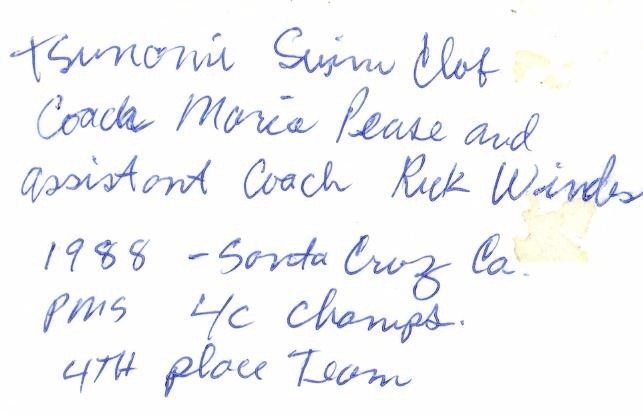 Tsunami Swim Club
Coach Maria Pease and
assistant Coach Rick Windes
1988 - Santa Cruz Ca.
PMS 4C Champs.
4TH place Team